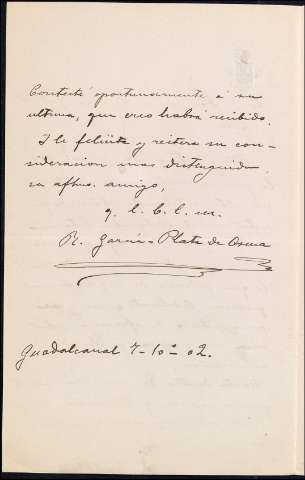 Contesté oportunamente á su
ultima, que creo habrá recibido.
I le felicita y reitera su con-
sideracion mas distinguida
su afmo. amigo,
q. l. b. l. m.
R. García-Plata de Osma
Guadalcanal 7-10ª-02.